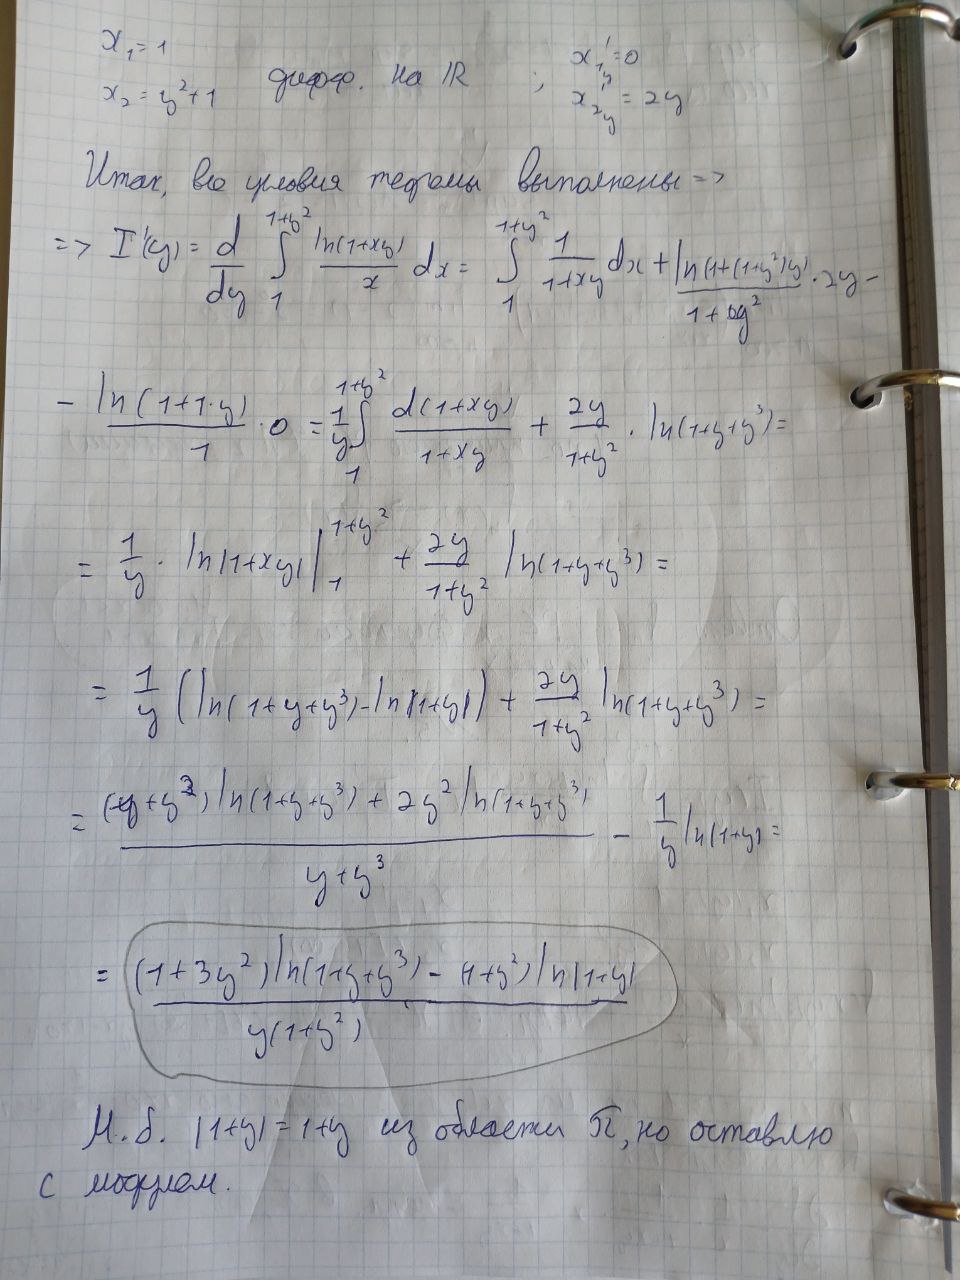 x₁ = 1 ; x₁' = 0
x₂ = y² + 1 дифф. на ℝ x₂'_y = 2y
Итак, все условия теоремы выполнены =>
=> I'(y) = d/dy ∫₁^(1+y²) ln(1+xy)/x dx = ∫₁^(1+y²) 1/(1+xy) dx + ln(1+(1+y²)y)/(1+y²) · 2y -
- ln(1+1·y)/1 · 0 = 1/y ∫₁^(1+y²) d(1+xy)/(1+xy) + 2y/(1+y²) · ln(1+y+y³) =
= 1/y · ln|1+xy| |₁^(1+y²) + 2y/(1+y²) ln(1+y+y³) =
= 1/y (ln(1+y+y³) - ln|1+y|) + 2y/(1+y²) ln(1+y+y³) =
= ( +y²) ln(1+y+y³) + 2y² ln(1+y+y³) / (y+y³) - 1/y ln|1+y| =
= ((1+3y²) ln(1+y+y³) - (1+y²) ln|1+y|) / (y(1+y²))
М.б. |1+y| = 1+y из области П, но оставлю
с модулем.